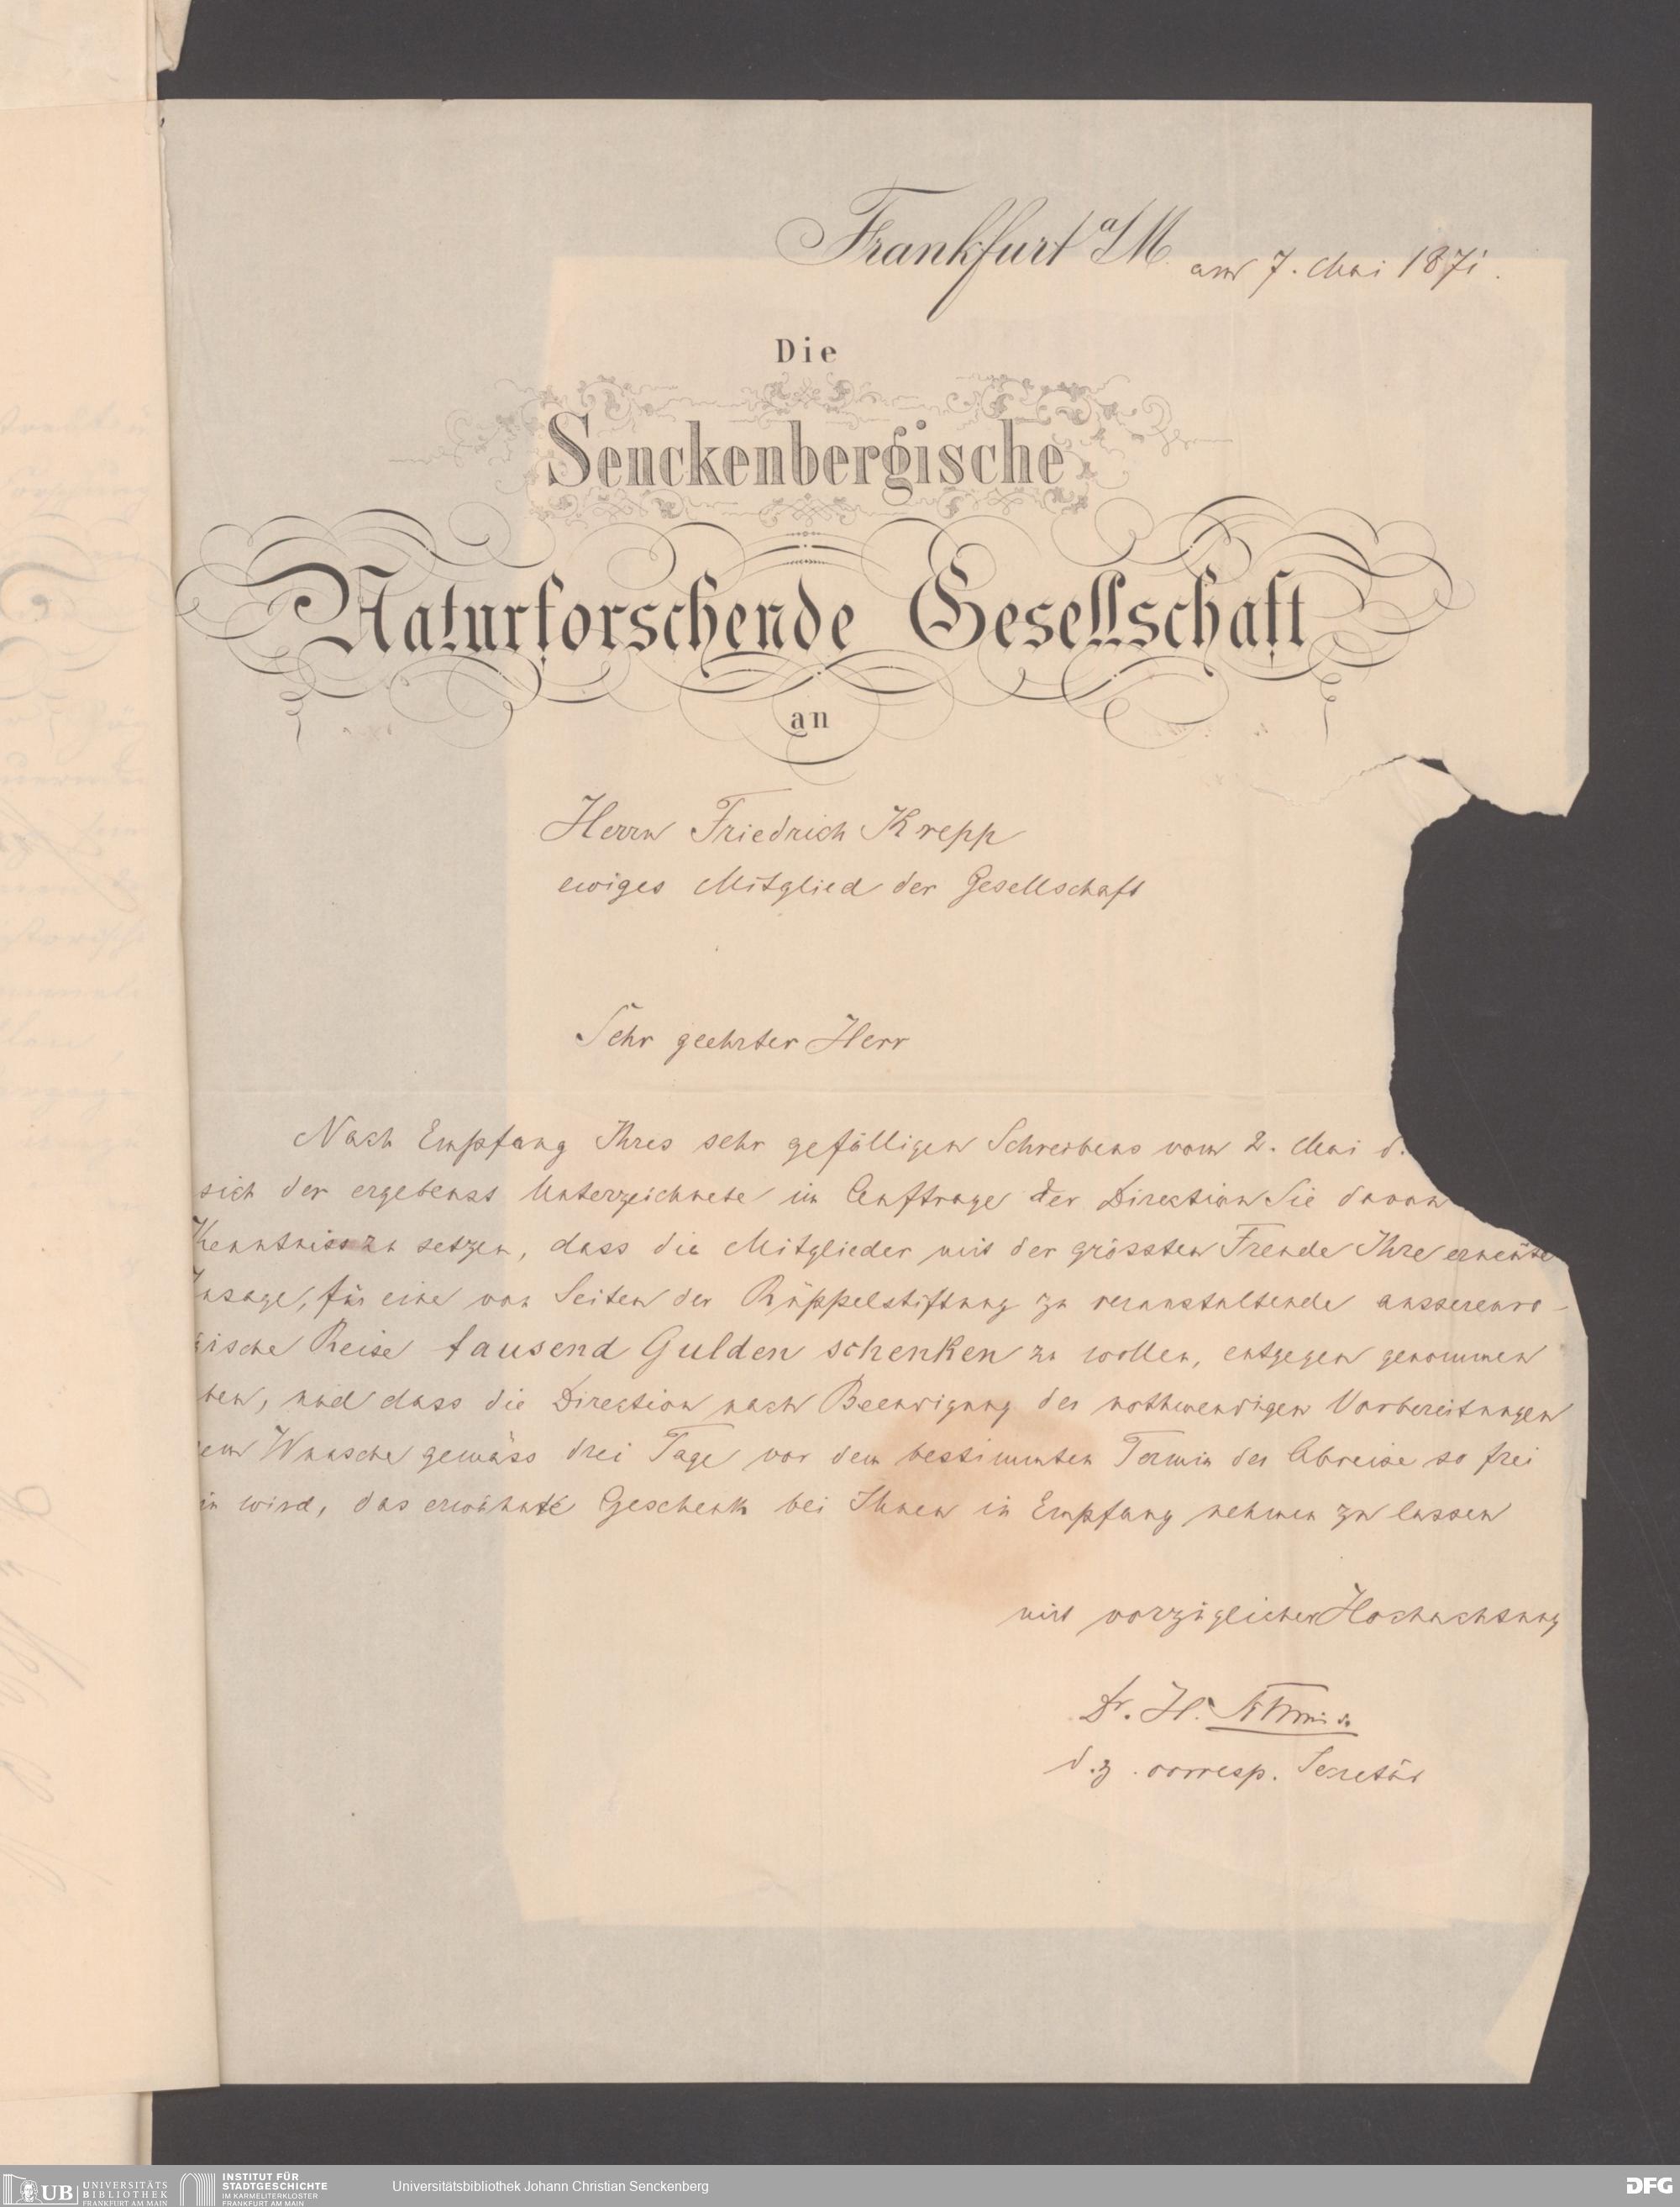 Frankfurt a/M am 7. Mai 1871.
Die
Senckenbergische
Naturforschende Gesellschaft
an
Herrn Friedrich Krepp
ewiges Mitglied der Gesellschaft
Sehr geehrter Herr
Nach Empfang Ihres sehr gefälligen Schreibens vom 2. Mai d.
sich der ergebenst Unterzeichnete im Auftrage der Direktion Sie davon
Kenntniss zu setzen, dass die Mitglieder mit der grössten Freude Ihre erneute
usage, für eine von Seiten der Rüppelstiftung zu veranstaltende aussereuro-
ische Reise tausend Gulden schenken zu wollen, entgegen genommen
ben, und dass die Direktion nach Beendigung der nothwendigen Vorbereitungen
em Wunsche gemäss drei Tage vor dem bestimmten Termin der Abreise so frei
in wird, das erwähnte Geschenk bei Ihnen in Empfang nehmen zu lassen
mit vorzüglicher Hochachtung
Dr. H.
d. z. corresp. Secretär
UB UNIVERSITÄTS
BIBLIOTHEK
FRANKFURT AM MAIN
INSTITUT FÜR
STADTGESCHICHTE
IM KARMELITERKLOSTER
FRANKFURT AM MAIN
Universitätsbibliothek Johann Christian Senckenberg
DFG